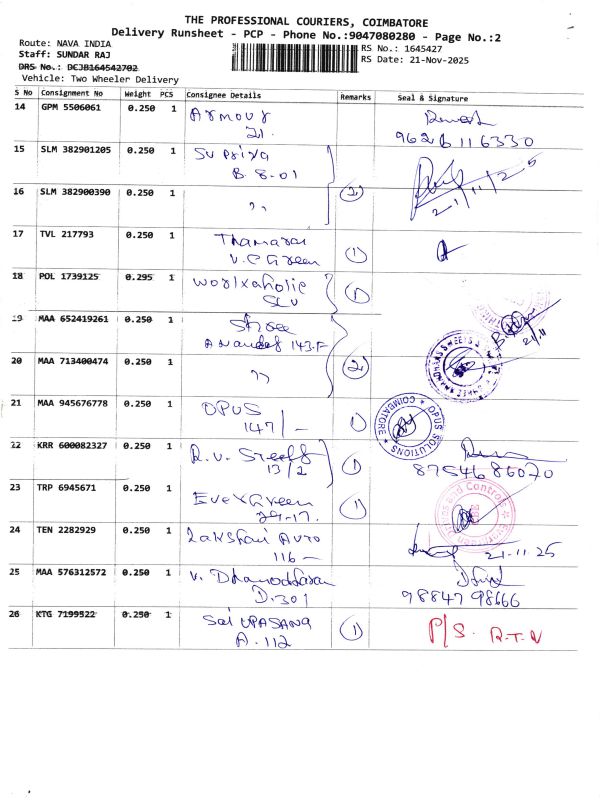 THE PROFESSIONAL COURIERS, COIMBATORE
Delivery Runsheet - PCP - Phone No.:9047080280 - Page No.:2
Route: NAVA INDIA
Staff: SUNDAR RAJ
DRS No.: DCJB164542702
Vehicle: Two Wheeler Delivery
RS No.: 1645427
RS Date: 21-Nov-2025
S No Consignment No Weight PCS Consignee Details Remarks Seal & Signature
14 GPM 5506061 0.250 1 Armour
21.
9626116330
15 SLM 382901205 0.250 1 Supriya
B 8-01
21/11/25
16 SLM 382900390 0.250 1 " 2
17 TVL 217793 0.250 1 Thamarai
V.C Green 1
18 POL 1739125 0.295 1 worlxaholic
SLV 1
21/11
19 MAA 652419261 0.250 1 Shree
Anandas 143.F
20 MAA 713400474 0.250 1 " 2
21 MAA 945676778 0.250 1 OPUS
147/- 1
OPUS SOLUTIONS * COIMBATORE *
22 KRR 600082327 0.250 1 R.V. Steels
13/2 1
87546 86070
23 TRP 6945671 0.250 1 EverGreen
29-17. 1
Evergreen and Controls
24 TEN 2282929 0.250 1 Lakshmi Auto
116 -
21-11-25
25 MAA 576312572 0.250 1 V. Dhamodharan
D.301
98847 98666
26 KTG 7199522 0.250 1 Sai UPASANA
A.112 1
P/S. R.T.N